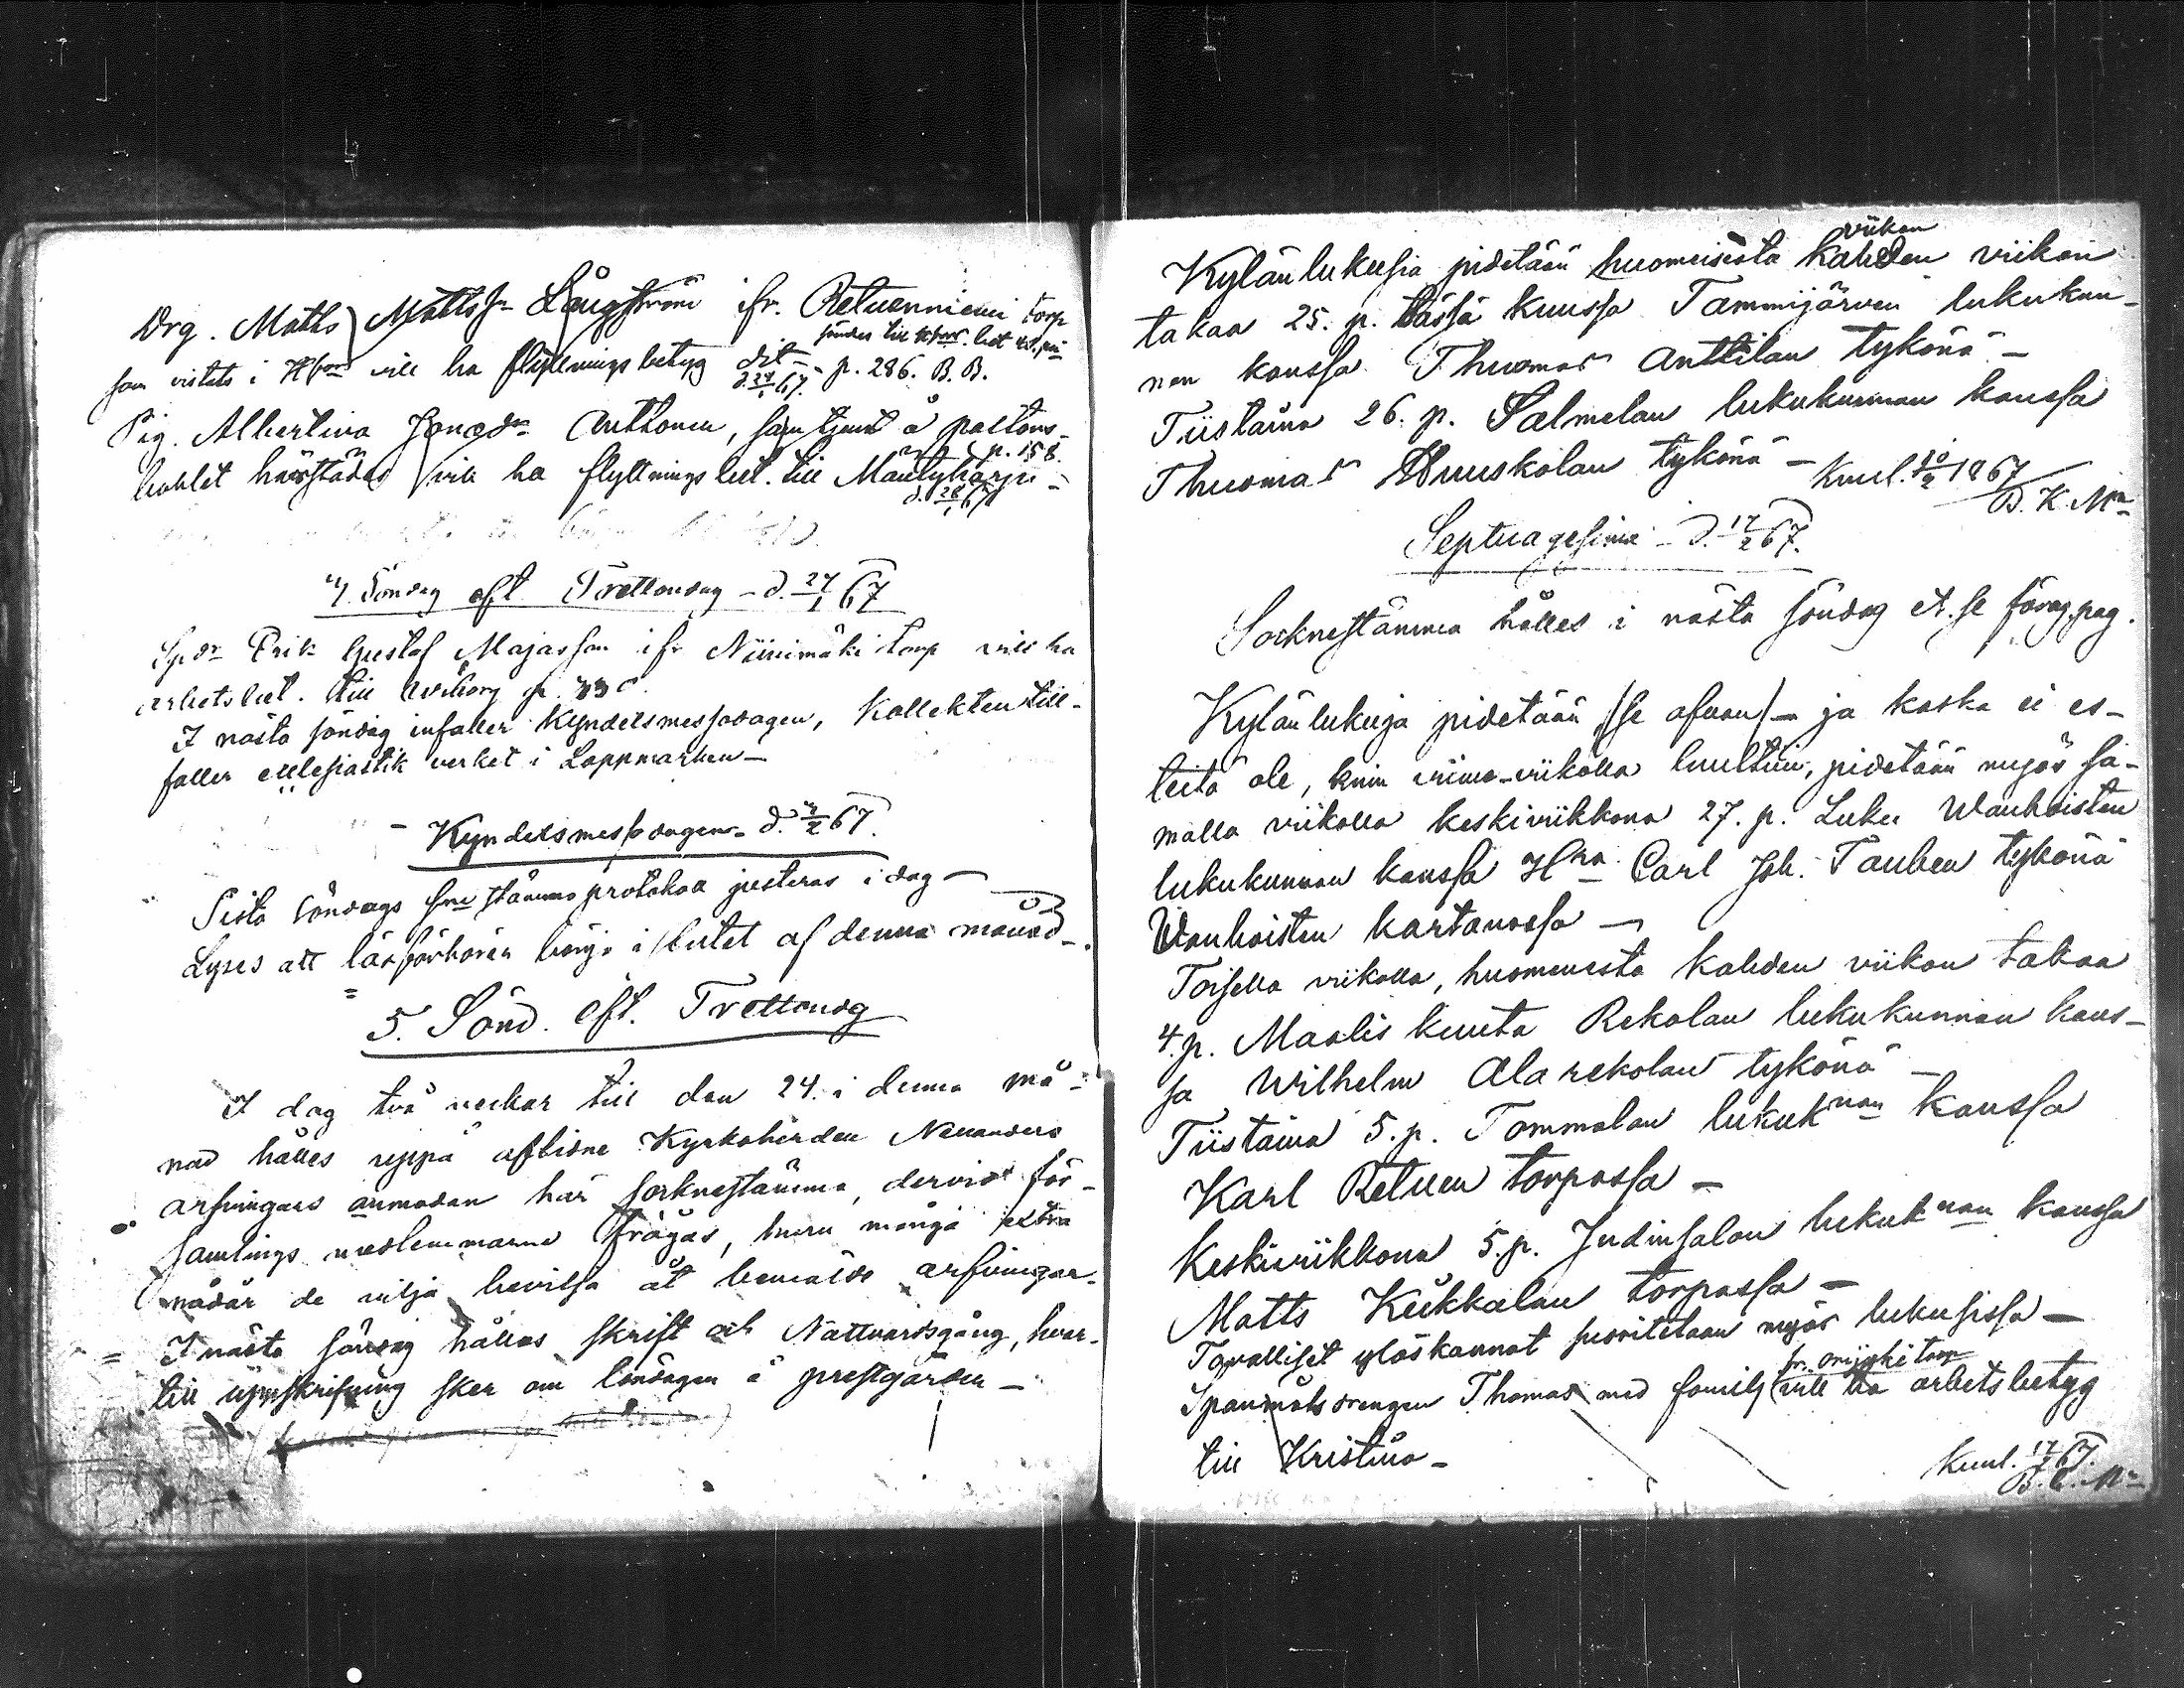 Drg. Matts Mattss:n Långström ifr. Retuenniemi torp
som vistats i Hfors vill ha flyttningsbetyg dit – p. 286. B. B.
d. 24/1 67.
Pig. Albertina Jonæd:r Anttonen, som tjent å pastors-
bohlet härstädes vill ha flyttningsbet. till Mäntyharju –
p. 158.
d. 28/1 67
4 Söndag eft. Trettondag – d. 27/1 67
Sp.dr. Erik Gustaf Majasson ifr Niinimäki torp vill ha
arbetsbet. till Wiborg p.
I nästa söndag infaller Kyndelsmessodagen, Kollekten till-
faller ecclesiastik verket i Lappmarken –
– Kyndelsmessodagen – d. 3/2 67.
Sista Söndags sne stämmoprotokoll justeras i dag –
Lyses att läsförhören börja i slutet af denna månad –
5. Sönd. eft. Trettondg
I dag två veckor till den 24. i denna må-
nad hålles uppå aflidne Kyrkoherden Nenanders
arfvingars anmodan här socknestämma, dervid för-
samlings medlemmarne frågas, huru många extra
nådår de vilja bevilja åt bemälde arfvingar –
= I nästa söndag hålles skrift och Nattvardsgång, hvar-
till uppskrifning sker om lördagen å prestgården –
Kylänlukusia pidetään huomeisista kahden viikon
viikon
takaa 25. p. tässä kuussa Tammijärven lukukun-
nan kanssa Thuomas Anttilan tykönä –
Tiistaina 26. p. Salmelan lukukunnan kanssa
Thuomas Huuskolan tykönä –
Kuul. 10/2 1867
B. K. M:n
Septuagesima – d. 17/2 67.
Socknestämma hålles i nästa söndag etc. se föreg. pag.
Kylänlukuja pidetään /se ofvan/ – ja koska ei es-
teitä ole, kuin viime-viikolla luultiin, pidetään myös sa-
malla viikolla keskiviikkona 27. p. Luku Wanhoisten
lukukunnan kanssa H:ra Carl Joh. Tauben tykönä
Wanhoisten kartanossa –
Toisella viikolla, huomenesta kahden viikon takaa
4. p. Maalis kuuta Rekolan lukukunnan kans-
sa Wilhelm Ala rekolan tykönä –
Tiistaina 5. p. Tommolan lukuk nan kanssa
Karl Retuen torpassa –
Keskiviikkona 5. p. Judinsalon lukuk nan kanssa
Matts Kükkälan torpassa –
Tavalliset yläskannot suoritetaan myös lukusissa –
Spanmåls drengen Thomas med familj vill ha arbetsbetyg
till Kristina –
Kuul. 17/2 67.
B. C. M:n